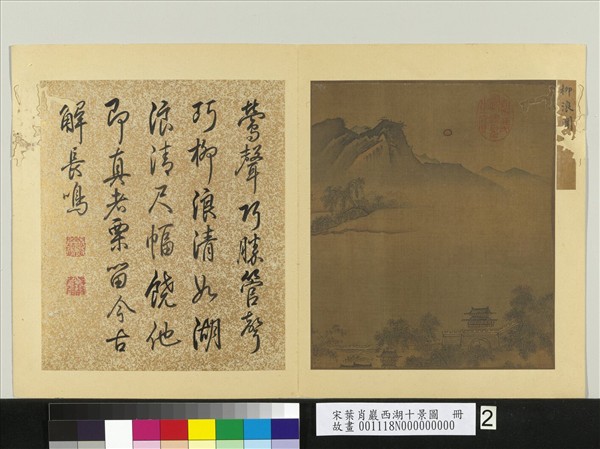 鶯聲巧勝管聲
巧柳浪清如湖
浪清尺幅饒他
即真者粟留今古
解長鳴
柳浪聞
宋葉肖巖西湖十景圖 冊
故畫 001118N000000000
2